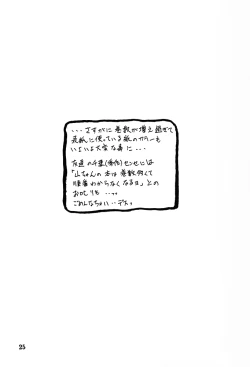 ・・・さすがに巻数が増え過ぎて
表紙に使っている紙のカラーも
いよいよ大変な事に・・・
友達の千葉(秀作)センセには
「山ちゃんの本は巻数多くて
順番わからなくなるヨ」との
お叱りも・・・。
ごめんなちい・・デスッ
25